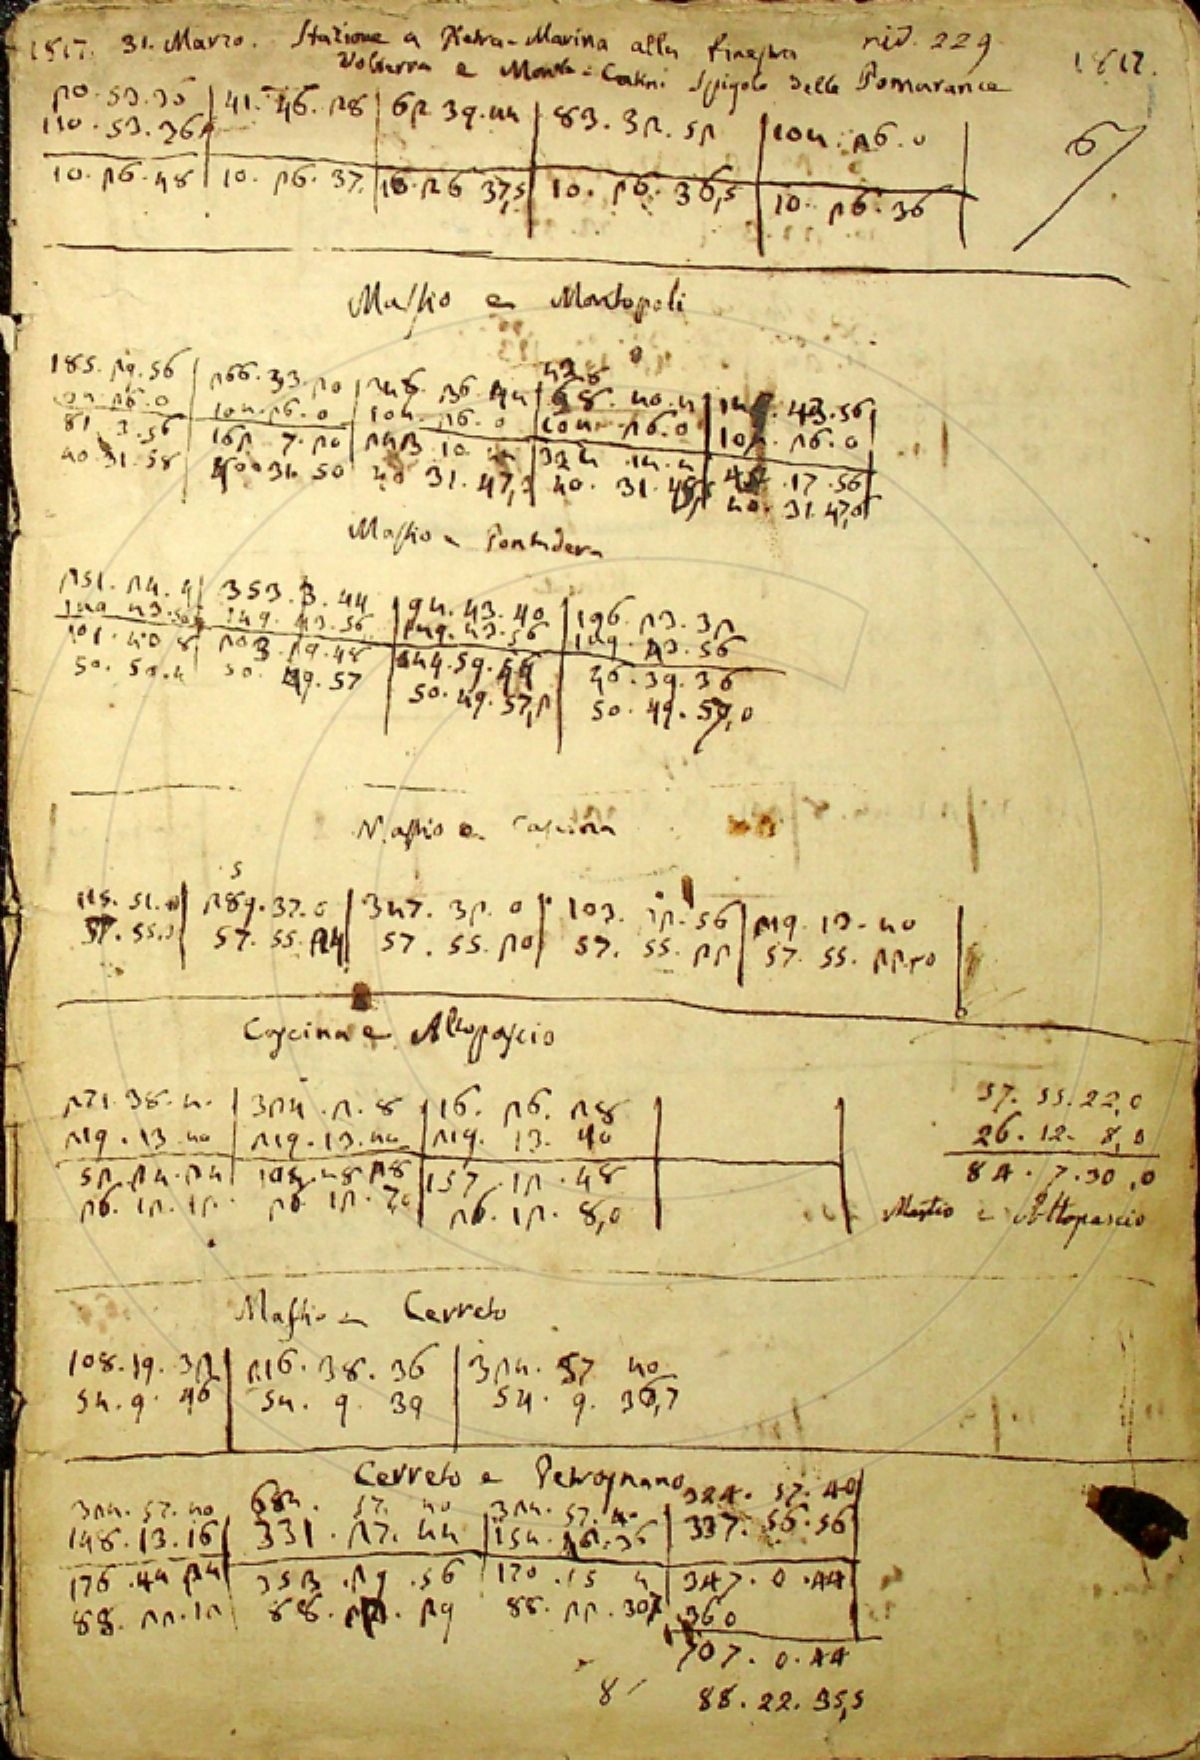 1817. 31. Marzo. Stazione a Pietra-Marina alla finestra rid. 229 1817.
Volterra e Monte-Catini Spigolo delle Pomarance
20.53.36 41.46.28 62.39.44 83.32.52 104.26.0
110.53.36
10.26.48 10.26.37. 10.26 37,5 10.26.36,5 10.26.36
6
Mastio e Montopoli
428
185.29.56 266.33.20 348.36.44 68.40.4 149.43.56
104.26.0 104.26.0 104.26.0 104.26.0 104.26.0
81.3.56 162 7.20 243 10.44 324.14.4 .17.56
40 31.58 40 31.47, 40.31.45,5 40.31.47,0
Mastio e Pontadera
251.24.4 353.3.44 94.43.40 196.23.32
149.43.56 149.43.56 149.43.56 149.43.56
101.40 8 203.19.48 .59.44 46.39.36
50.50.4 50.49.57 50.49.57,2 50.49.57,0
Mastio e Cascina
5
115.51.0 289.37.0 347.32.0 103..56 219.13.40
57.55.3 57.55.24 57.55.20 57.55.22 57.55.22.
Cascina e Altopascio
271.38.4. 324.2.8 16.26.28 57.55.22,0
219.13.40 219.13.40 219.13.40 26.12.8,0
52.24.24 104.48 28 157.12.48 84.7.30,0
26.12.12. 26 12.20 26.12.8,0 Mastio e Altopascio
Mastio e Cerreto
108.19.32 216.38.36 324.57 40
54.9.46 54.9.39 54.9.36,7
Cerreto e Petrognano
324.57.40 684.57.40 324.57.40 324.57.40
148.13.16 331.27.44 154..36 337.56.56
176.44 24 353.29.56 170.15 4 347.0.44
88.22.12 88.22.29 88.22.30, 360
707.0.44
8 88.22.35,5